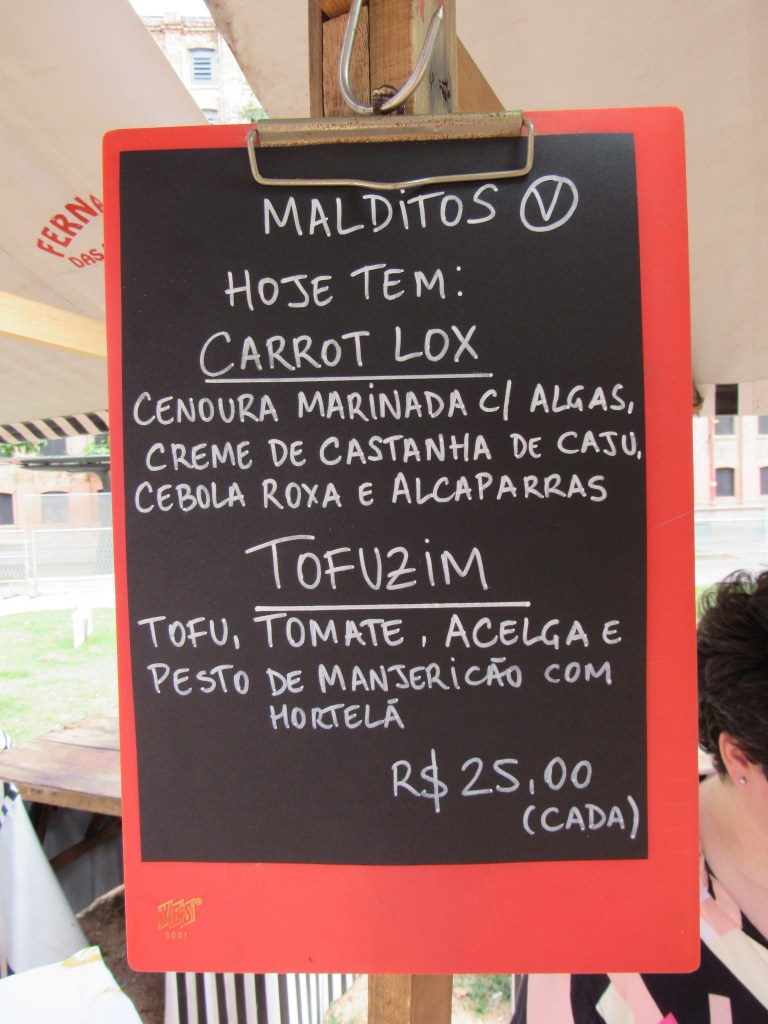 MALDITOS V
HOJE TEM:
CARROT LOX
CENOURA MARINADA C/ ALGAS,
CREME DE CASTANHA DE CAJU,
CEBOLA ROXA E ALCAPARRAS
TOFUZIM
TOFU, TOMATE, ACELGA E
PESTO DE MANJERICÃO COM
HORTELÃ
R$ 25,00
(CADA)
YES®
DAS